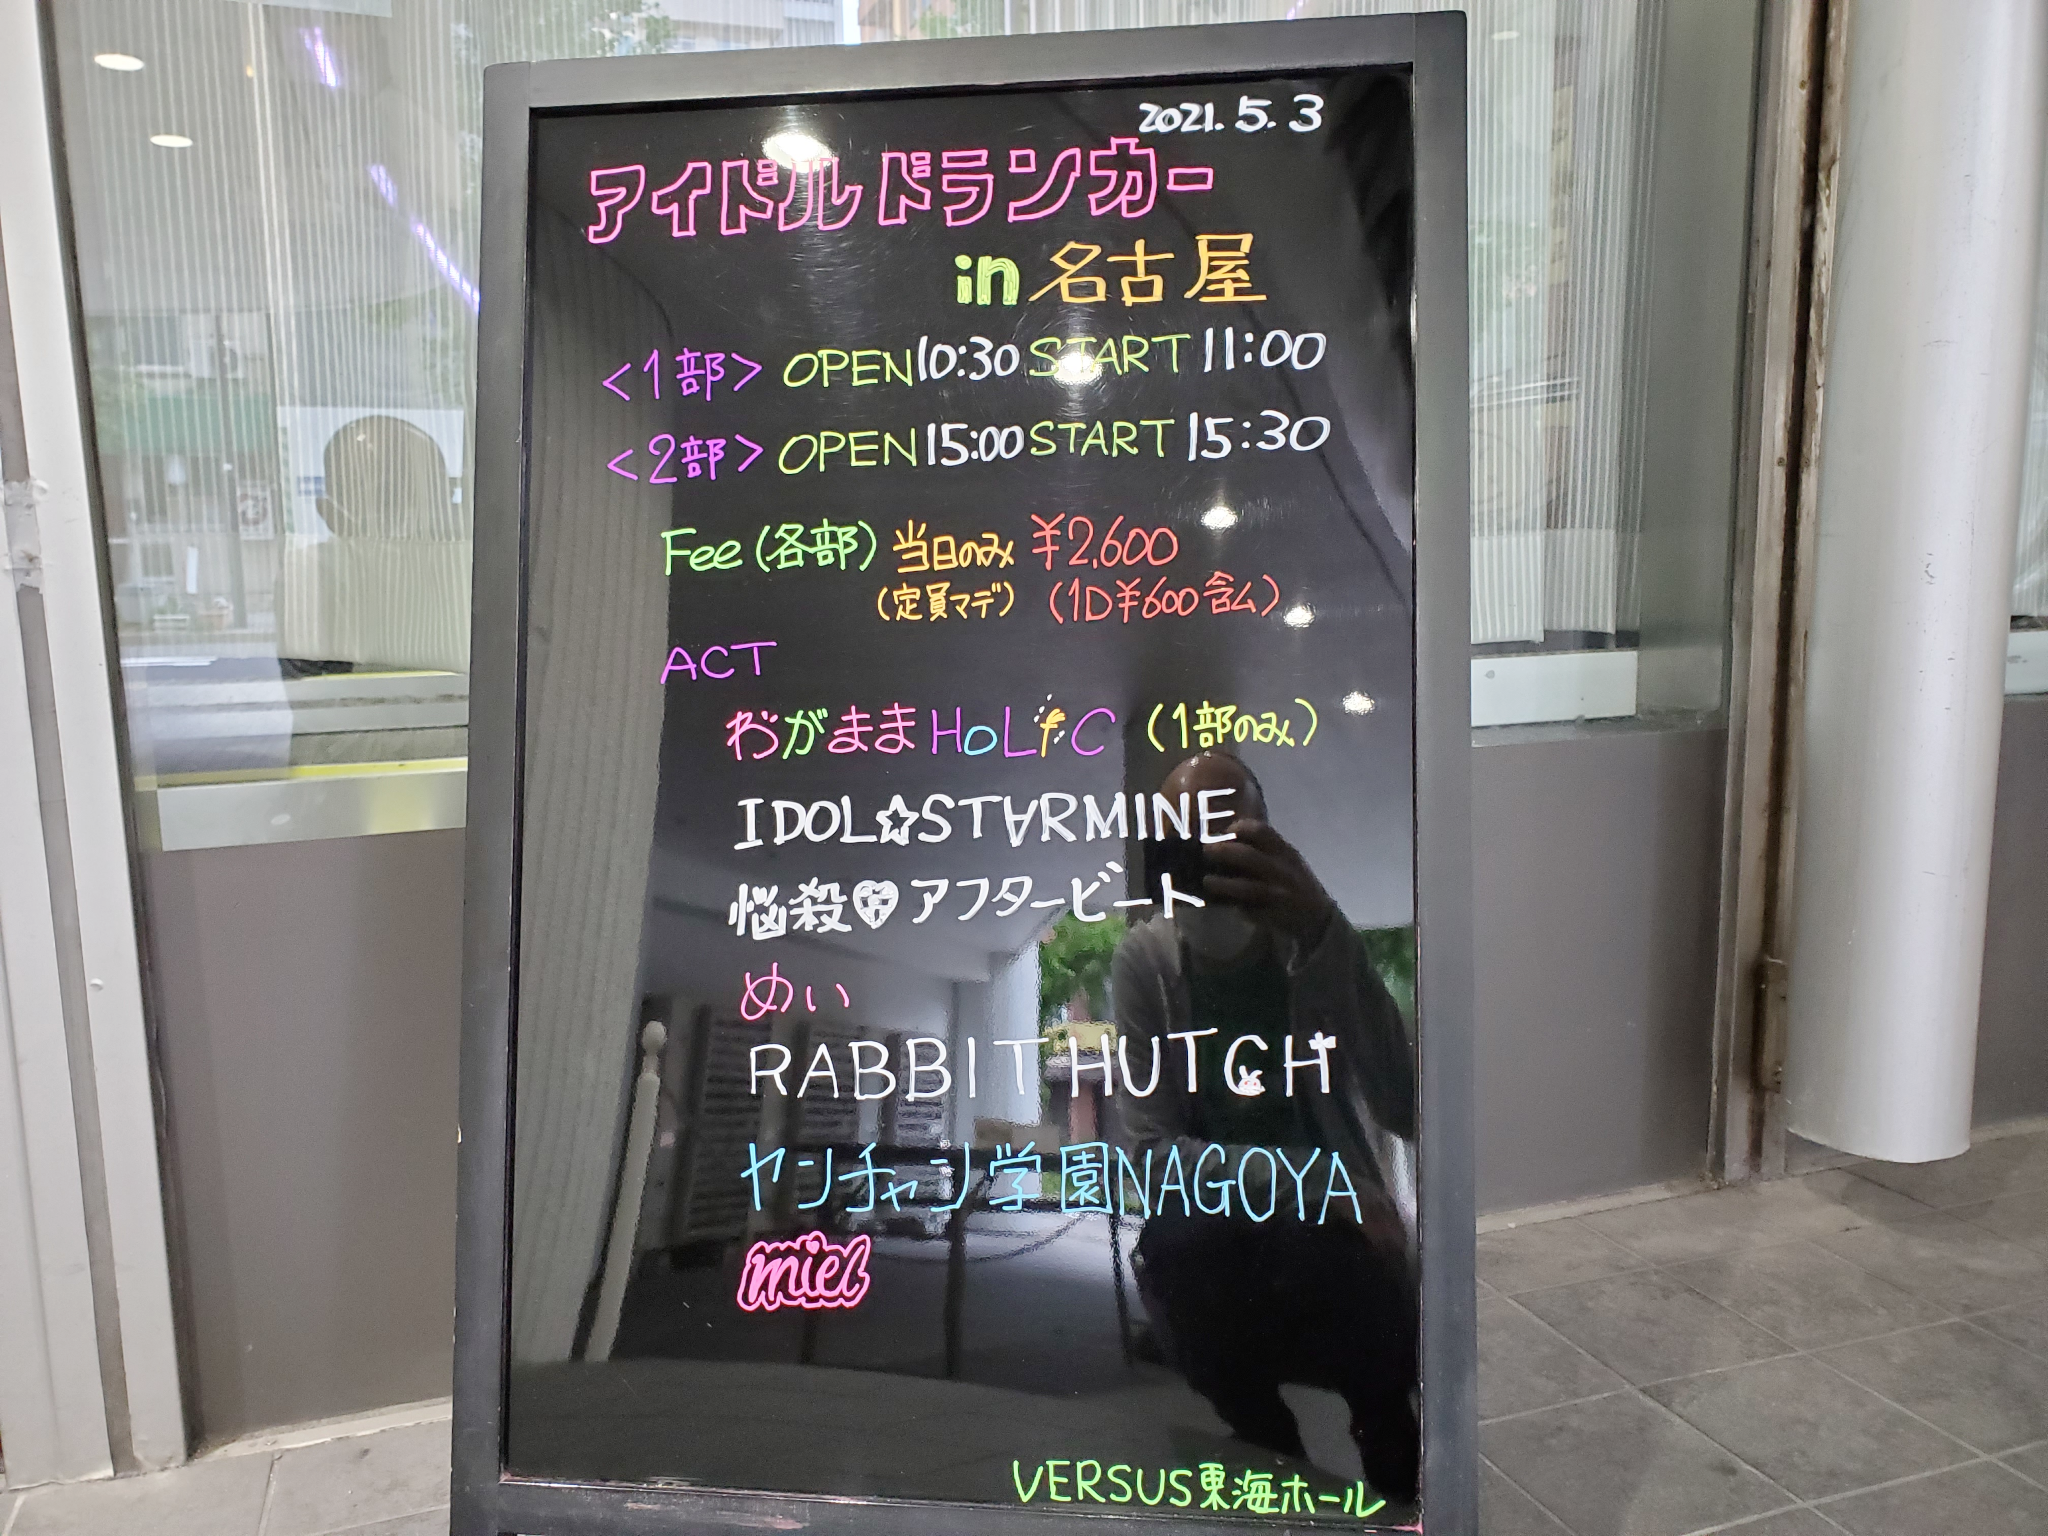 2021.5.3
アイドルドランカー
in 名古屋
<1部> OPEN 10:30 START 11:00
<2部> OPEN 15:00 START 15:30
Fee (各部) 当日のみ ¥2,600
(定員マデ) (1D¥600含ム)
ACT
わがままHoLiC (1部のみ)
IDOL☆ST∀RMINE
悩殺♡アフタービート
めぃ
RABBIT HUTCH
ヤンチャン学園NAGOYA
miel
VERSUS東海ホール